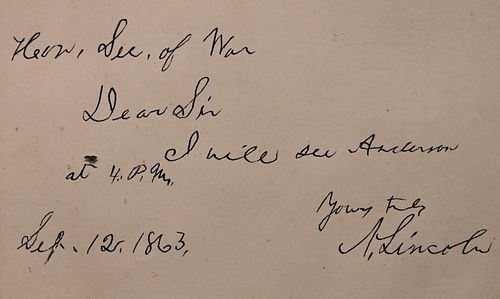 Hon. Sec. of War
Dear Sir
I will see Anderson
at 4. P.M.
Yours truly
Sep. 12. 1863,
A. Lincoln